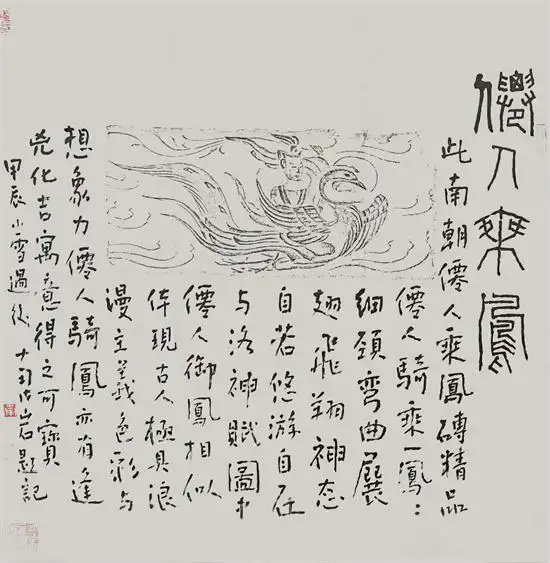 僊人乘鳳
此南朝僊人乘鳳磚精品
僊人騎乘一鳳：
細頸彎曲展
翅飛翔神态
自若悠游自在
与洛神賦圖中
僊人御鳳相似
体現古人極具浪
漫主義色彩与
想象力僊人騎鳳亦有逢
兇化吉寓意得之可寶
甲辰小雪過後 岩題記